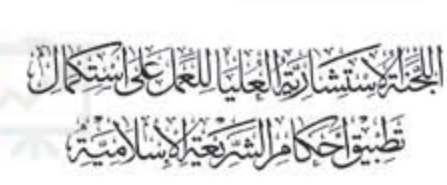 اللجنة الاستشارية العليا للعمل على استكمال
تطبيق أحكام الشريعة الإسلامية